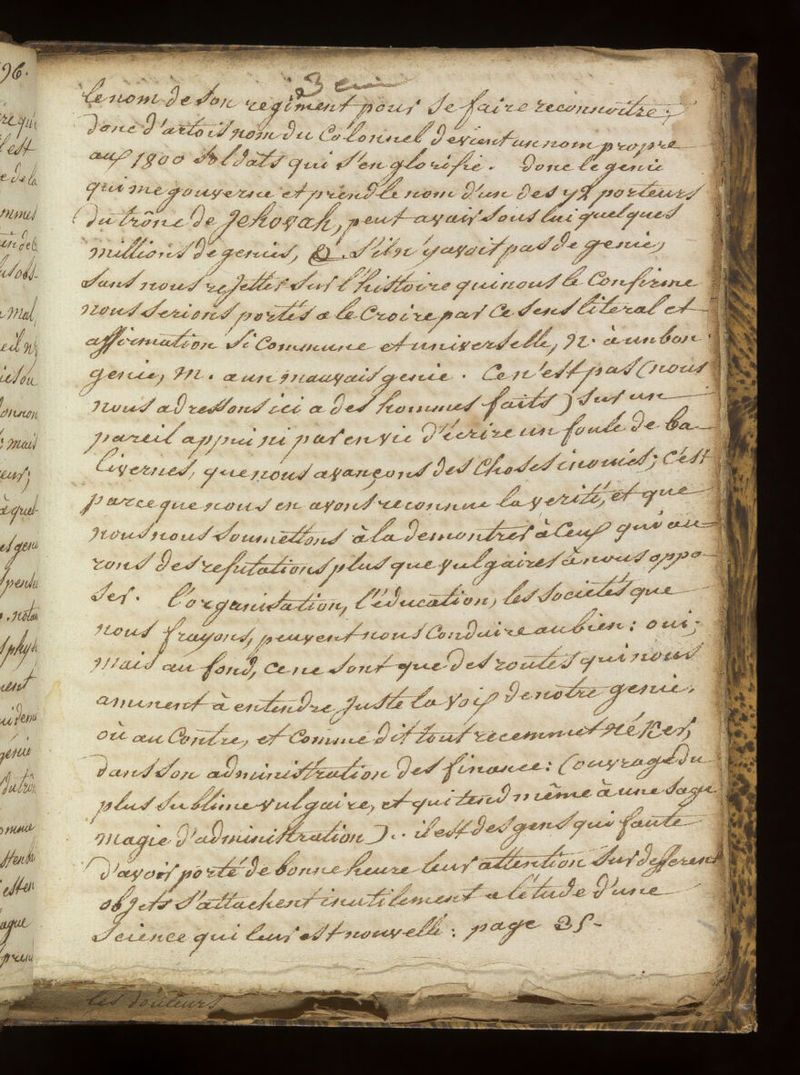 3 eme
le nom de son regiment pour se faire reconnoitre;
donc d'artois nom du Colonnel devient un nom propre
aux 1800 soldats qui s'en glorifie. donc le genie
qui me gouverne et prend le nom d'un des 72 porteurs
du trône de Jehovah, peut avair sous lui quelques
millions de genies, & . s'il n'y avoit pas de genie,
sans nous rejetter sur l'histoire qui nous le Confirme
nous serions portés a le Croire par ce sens literal et
affirmation si Commune et universelle, N. à un bon
genie, M. a un mauvais genie. Ce n'est pas (nous
nous adressons ici a des hommes faits) sur un
pareil appui ni par envie d'écrire un foule de ba-
livernes, que nous avançons des Choses inouies; c'est
parceque nous en avons reconnue la verité, et que
nous nous soumettons à la demontrer à Ceux qui au=
rons des refutations plus que vulgaires à nous oppo-
ser. l'organisation, l'éducation, les societés que
nous frayons, peuvent nous Conduire au bien: oui;
mais au fond, ce ne sont que des routes qui nous
aminent à entendre juste la voix de notre genie.
où au Contre, et Comme dit tout recemment Néker,
dans son administration des finance: (ouvrage du
plus sublime vulgaire, et qui tend même à une sage
magie d'administration). il est des gens qui faute
d'avoir porté de bonne heure leur attention sur differens
objets s'attachent inutilement a létude d'une
science qui leur est nouvelle: page 35-
les douleurs
96.